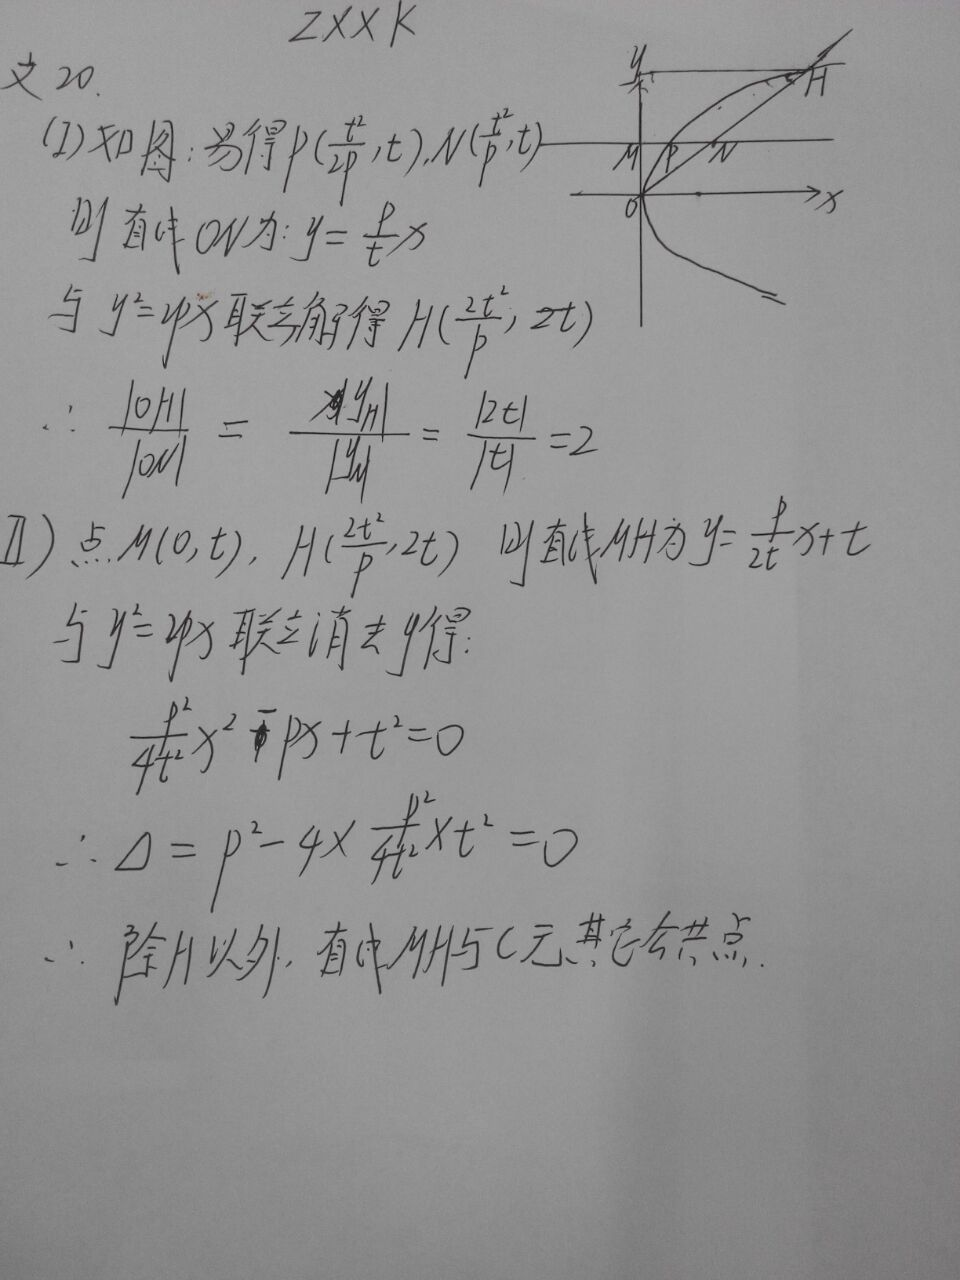 ZXXK
文20.
(I) 如图：易得P(t²/2p, t), N(t²/p, t)
则直线ON为: y = p/t x
与 y²=2px 联立解得 H(2t²/p, 2t)
∴ |OH|/|ON| = |y_H|/|y_N| = |2t|/|t| = 2
II) 点M(0,t), H(2t²/p, 2t) 则直线MH为 y = p/2t x + t
与 y²=2px 联立消去y得:
p²/4t² x² - px + t² = 0
∴ Δ = p² - 4× p²/4t² ×t² = 0
∴ 除H以外, 直线MH与C无其它公共点.
y
H
M
P
N
O
x